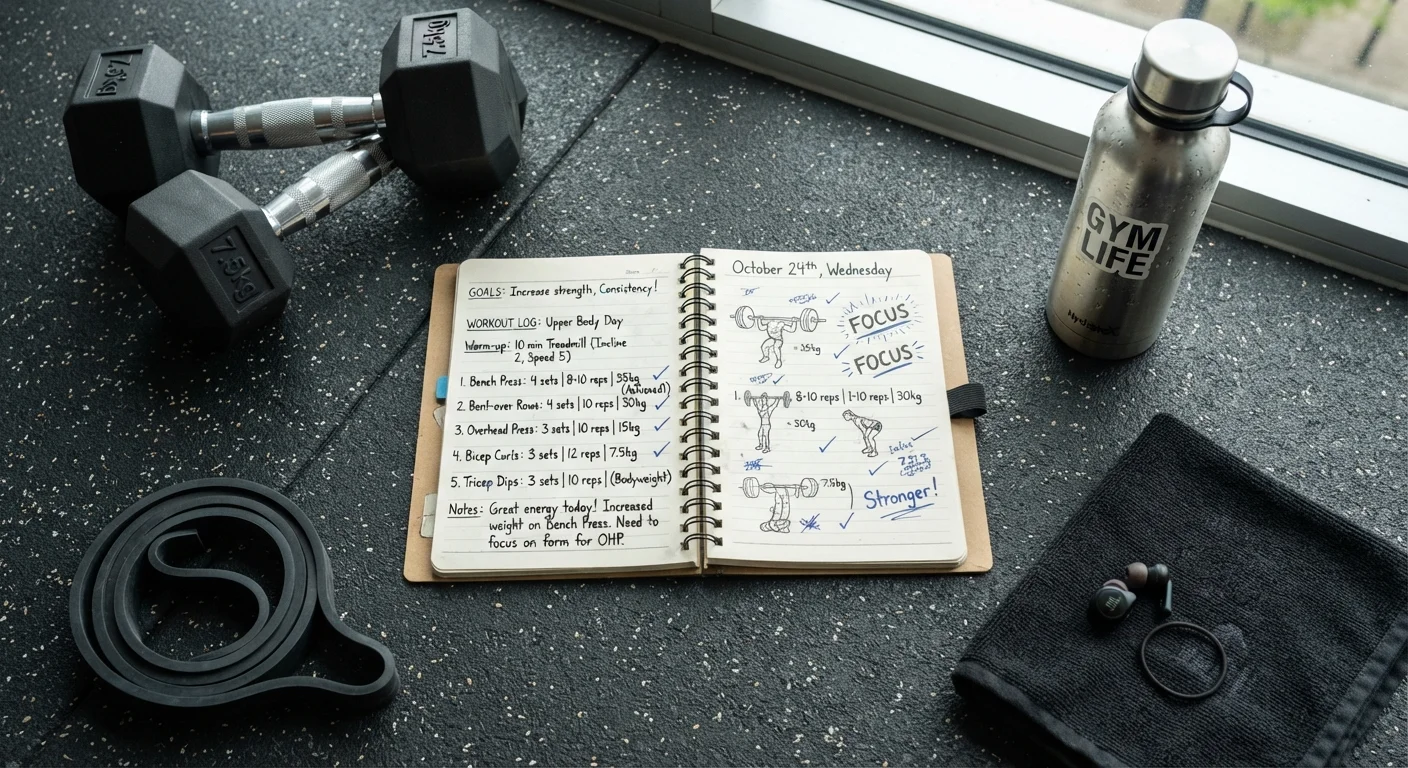 7.5kg
7.5kg
7.5kg
GOALS: Increase strength, Consistency!
WORKOUT LOG: Upper Body Day
Warm-up: 10 min Treadmill (Incline
2, Speed 5)
1. Bench Press: 4 sets | 8-10 reps | 35kg
2. Bent-over Rows: 4 sets | 10 reps | 30kg
3. Overhead Press: 3 sets | 10 reps | 15kg
4. Bicep Curls: 3 sets | 12 reps | 7.5kg
5. Tricep Dips: 3 sets | 10 reps | (Bodyweight)
Notes: Great energy today! Increased
weight on Bench Press. Need to
focus on form for OHP.
October 24th, Wednesday
FOCUS
= 35kg
FOCUS
1. 8-10 reps | 1-10 reps | 30kg
= 30kg
7.5kg
Stronger!
GYM
LIFE
JBL